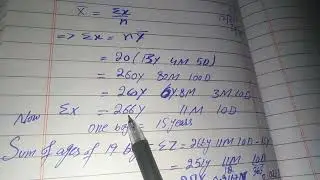 x̄ = Σx/n
=> Σx = nx̄
= 20 (13Y 4M 5D)
= 260Y 80M 100D
= 260Y 6Y.8M 3M.10D
Now Σx = 266Y 11M 10D
one boy = 15 years
Sum of ages of 19 boys = Σ = 266Y 11M 10D -
= 251Y 11M 10D